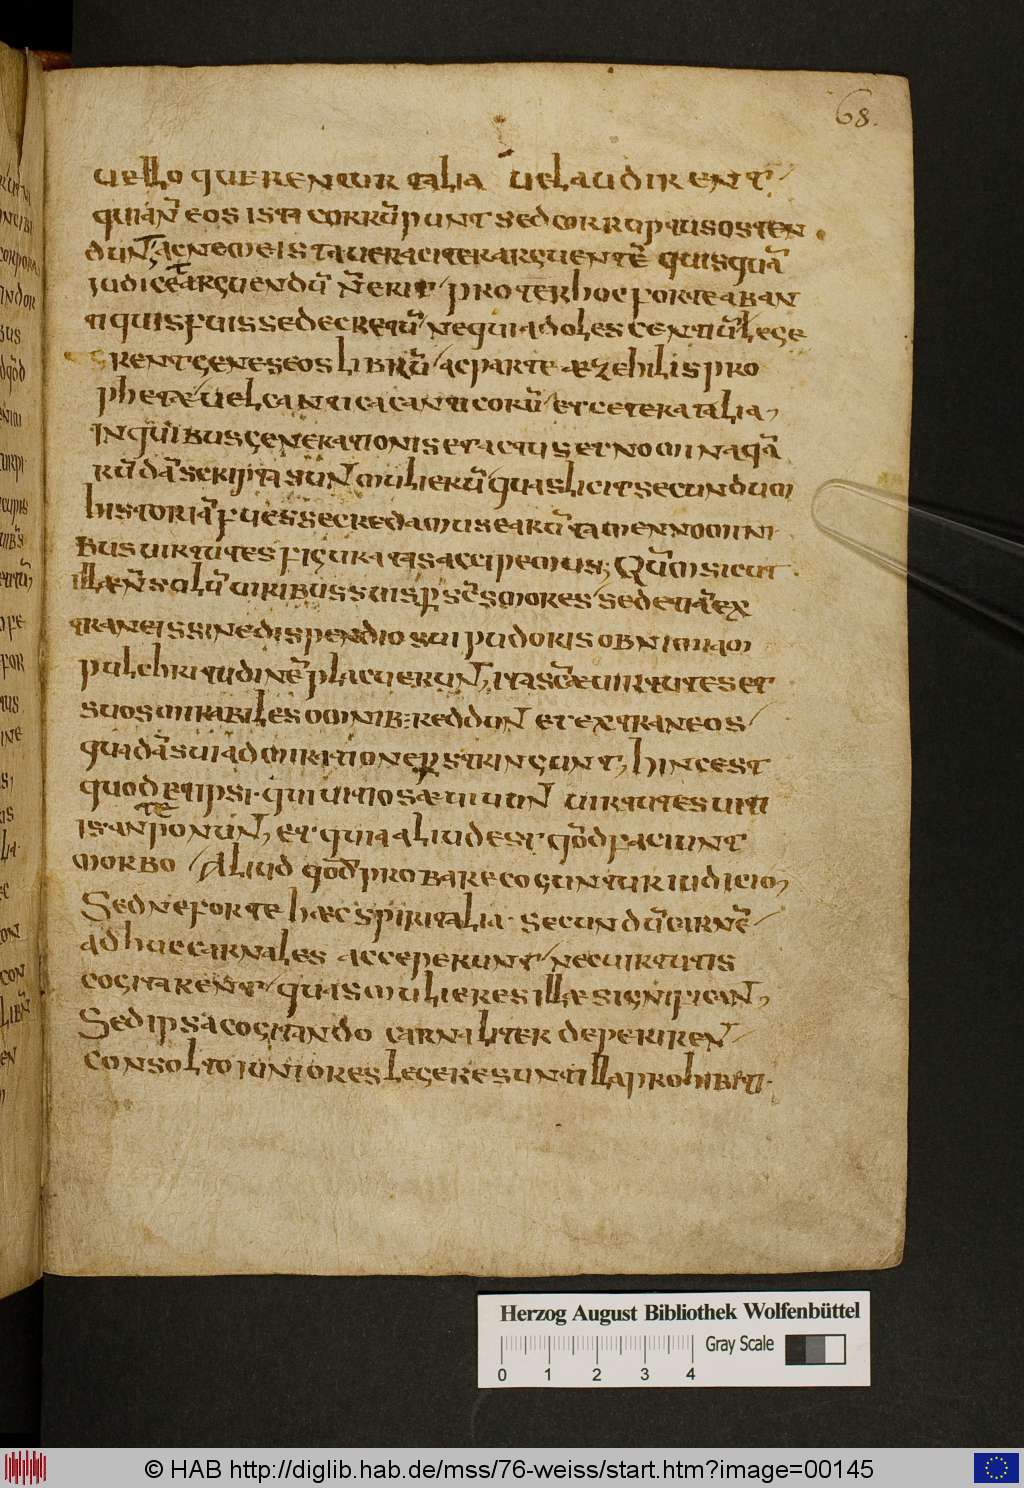 68.
uel loquerentur talia uel audirent
quia n̄ eos ista corrūpunt sed corruptus osten
dunt, ac ne me ista ueraciter arguentē quisquā
iudicet arguendū n̄ erit propter hoc forte aban
tiquis fuisse decretū ne qui adolescentiū lege
rent geneseos librū ac parte aezehihelis pro
phetae uel cantica canticorū et cetera talia,
In quibus generationis et actus et nomina quā
rūdā scripta sunt mulierū quas licit secundum
historiā fuesse credamus earū tamen nomini
bus uirtutes figuratas accipemus; Quū sicut
illae n̄ solū uiribus suis p scōs mores sed etiā ex
traneis sine dispendio sui pudoris ob nimiam
pulchritudinē placuerunt, ita scāe uirtutes et
suos mirabiles omnib: reddunt et extraneos
quadā sui admiratione pstringunt, hinc est
quod et ipsi qui uitiosae uiuunt uirtutes uiti
is anteponunt, et quia aliud est qōd faciunt
morbo Aliud qōd probare coguntur iudicio,
Sed ne forte haec spiritalia secundū carnē
adhuc carnales acceperunt nec uirtutis
cogitarent quas mulieres illae significant,
Sed ipsa cogitando carnaliter deperirent
consolto iuniores legere sunt illa prohibiti.
Herzog August Bibliothek Wolfenbüttel
Gray Scale
0 1 2 3 4
© HAB http://diglib.hab.de/mss/76-weiss/start.htm?image=00145